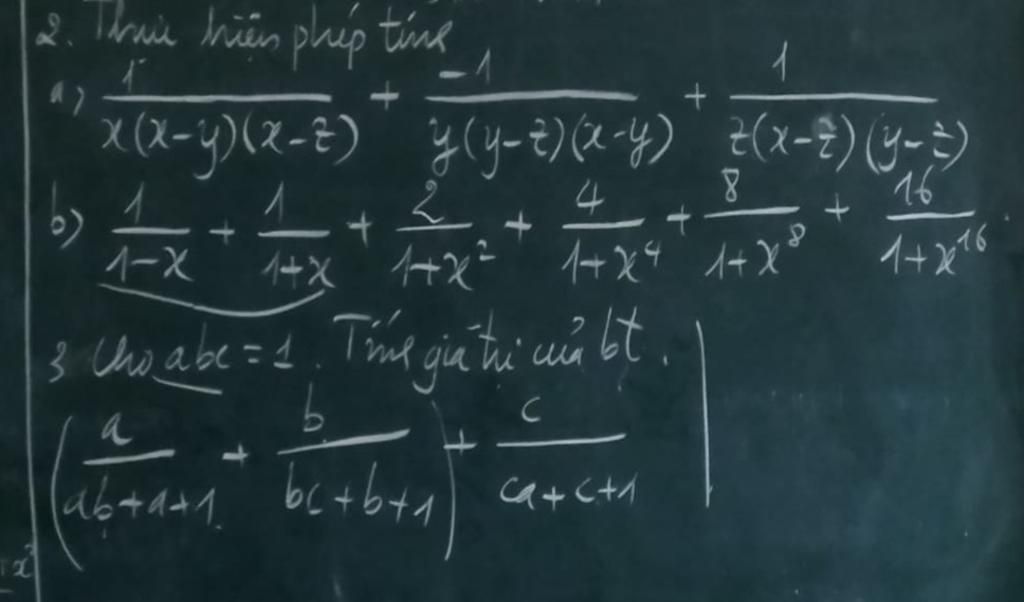 2. Thực hiện phép tính
a) 1/(x(x-y)(x-z)) + -1/(y(y-z)(x-y)) + 1/(z(x-z)(y-z))
b) 1/(1-x) + 1/(1+x) + 2/(1+x²) + 4/(1+x⁴) + 8/(1+x⁸) + 16/(1+x¹⁶)
3 Cho abc = 1. Tính giá trị của bt.
(a/(ab+a+1) + b/(bc+b+1)) + c/(ca+c+1)